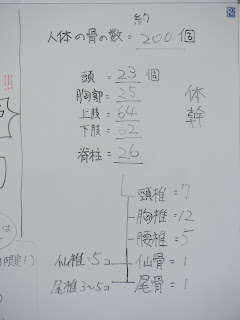 約
人体の骨の数=200個
頭=23個
胸部=25
上肢=64
下肢=62
脊柱=26
体幹
頸椎=7
胸椎=12
腰椎=5
仙椎=5コ 仙骨=1
尾椎3~5コ 尾骨=1